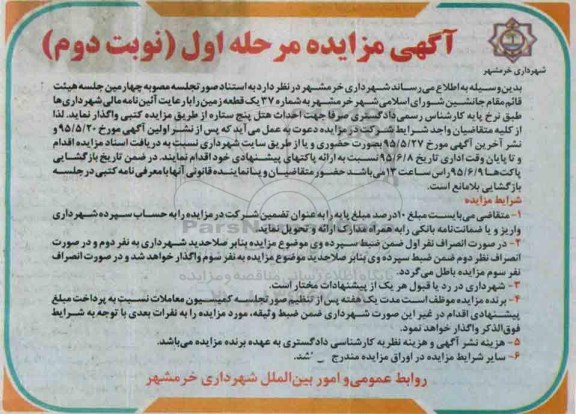 شهرداری خرمشهر
آگهی مزایده مرحله اول (نوبت دوم)
بدین‌وسیله به اطلاع می‌رساند شهرداری خرمشهر در نظر دارد به استناد صورتجلسه مصوبه چهارمین جلسه هیئت
قائم مقام جانشین شورای اسلامی شهر خرمشهر به شماره ۳۷ یک قطعه زمین را با رعایت آئین‌نامه مالی شهرداری‌ها
طبق نرخ پایه کارشناس رسمی دادگستری صرفا جهت احداث هتل پنج ستاره از طریق مزایده کتبی واگذار نماید. لذا
از کلیه متقاضیان واجد شرایط شرکت در مزایده دعوت به عمل می‌آید که پس از نشر اولین آگهی مورخ ۹۵/۵/۲۰ و
نشر آخرین آگهی مورخ ۹۵/۵/۲۷ بصورت حضوری و یا از طریق سایت شهرداری نسبت به دریافت اسناد مزایده اقدام
و تا پایان وقت اداری تاریخ ۹۵/۶/۸ نسبت به ارائه پاکتهای پیشنهادی خود اقدام نمایند. در ضمن تاریخ بازگشایی
پاکت‌ها ۹۵/۶/۹ راس ساعت ۱۳ می‌باشد حضور متقاضیان و یا نماینده قانونی آنها با معرفی نامه کتبی در جلسه
بازگشایی بلامانع است.
شرایط مزایده
۱- متقاضی می‌بایست مبلغ ۱۰ درصد مبلغ پایه را به عنوان تضمین شرکت در مزایده را به حساب سپرده شهرداری
واریز و یا ضمانت‌نامه بانکی را به همراه مدارک ارائه و تحویل نماید.
۲- در صورت انصراف نفر اول ضمن ضبط سپرده وی موضوع مزایده بنابر صلاحدید شهرداری به نفر دوم و در صورت
انصراف نفر دوم ضمن ضبط سپرده وی بنابر صلاحدید موضوع مزایده به نفر سوم واگذار خواهد شد و در صورت انصراف
نفر سوم مزایده باطل می‌گردد.
۳- شهرداری در رد یا قبول هر یک از پیشنهادات مختار است.
۴- برنده مزایده موظف است مدت یک هفته پس از تنظیم صورتجلسه کمیسیون معاملات نسبت به پرداخت مبلغ
پیشنهادی اقدام در غیر این صورت شهرداری ضمن ضبط وثیقه، مورد مزایده را به نفرات بعدی با توجه به شرایط
فوق‌الذکر واگذار خواهد نمود.
۵- هزینه نشر آگهی و هزینه نظریه کارشناسی دادگستری به عهده برنده مزایده می‌باشد.
۶- سایر شرایط مزایده در اوراق مزایده مندرج
روابط عمومی و امور بین‌الملل شهرداری خرمشهر